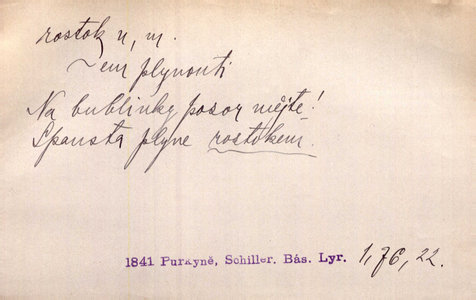 rostok u, m.
~em plynouti
Na bublinky posor mějte!
Spousta plyne rostokem.
1841 Purkyně, Schiller. Bás. Lyr. 1, 76, 22.